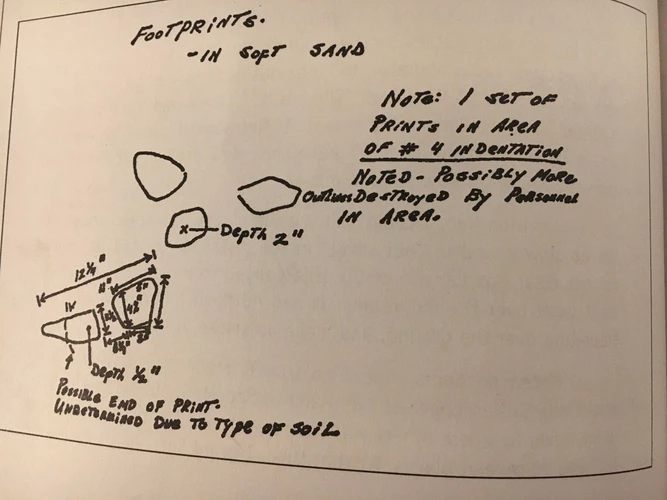 FOOTPRINTS.
- IN SOFT SAND
NOTE: 1 SET OF
PRINTS IN AREA
OF # 4 INDENTATION
NOTED - POSSIBLY MORE
OUTLINES DESTROYED BY PERSONNEL
IN AREA.
DEPTH 2"
12 1/4"
DEPTH 1/2"
POSSIBLE END OF PRINT.
UNDETERMINED DUE TO TYPE OF SOIL